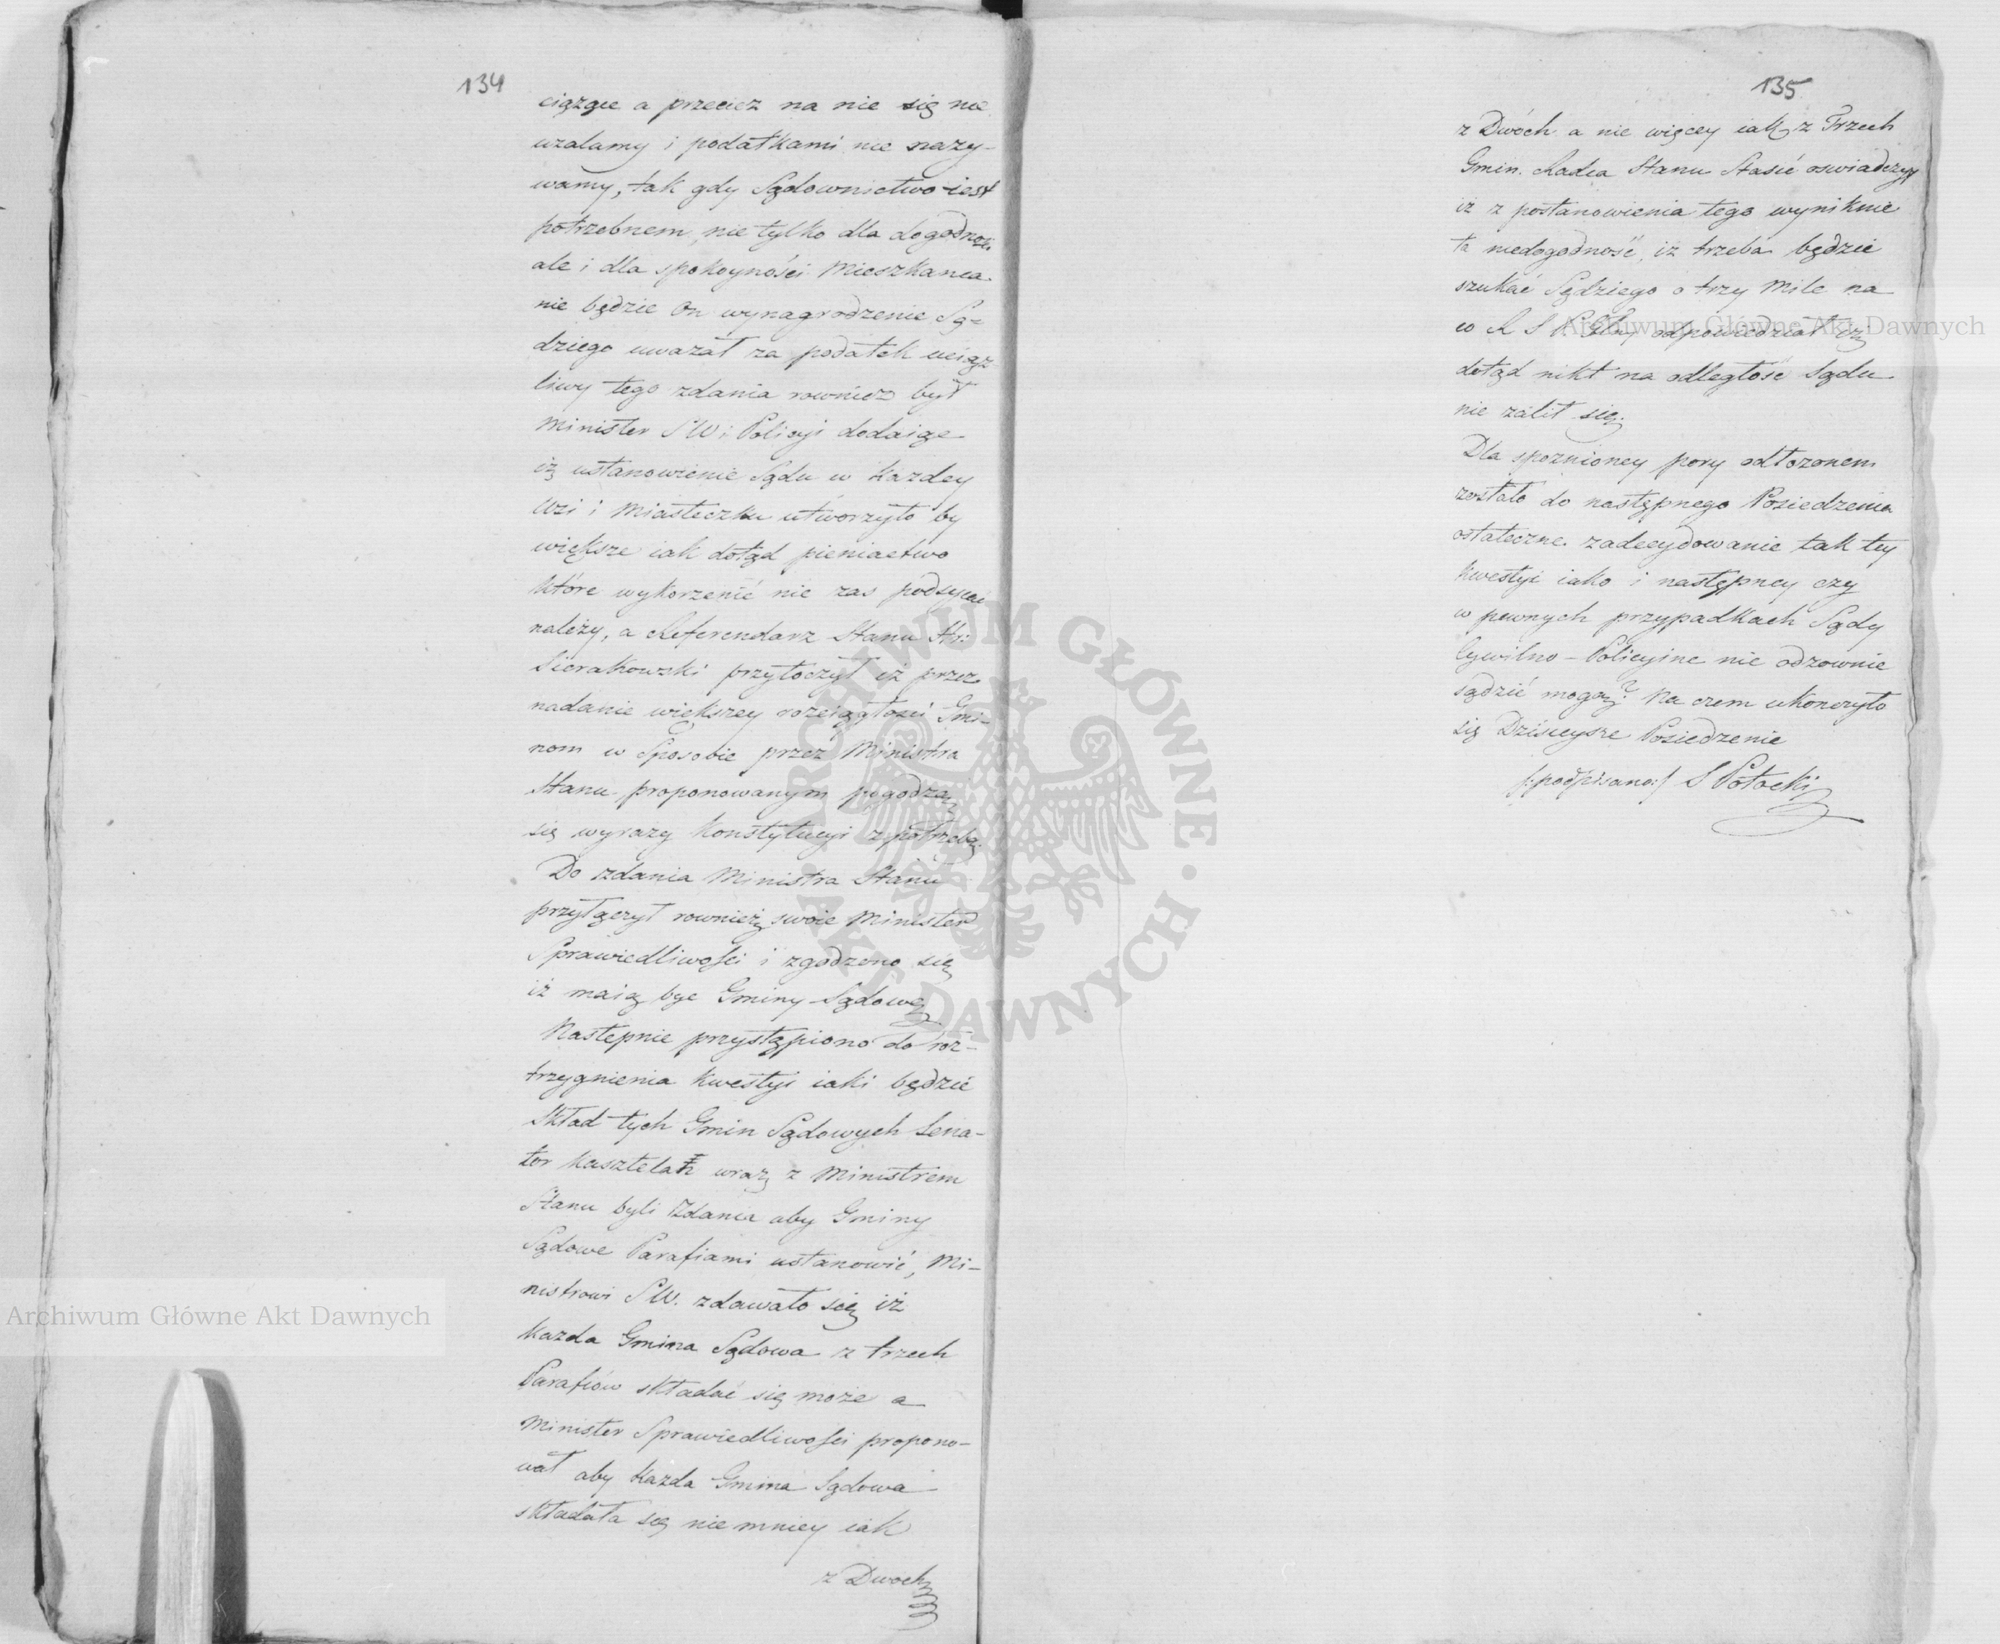 134
ciązgce a przeciez na nie się nie
uzalamy i podatkami nie nazy-
wamy, tak gdy Sądownictwo iest
potrzebnem, nie tylko dla dogodnosci
ale i dla spokoyności Mieszkanca
nie będzie On wynagrodzenie Sę-
dziego uwazał za podatek uciąz
liwy tego zdania rowniez był
Minister SW i Policyi dodaiąc
iż ustanowienie Sądu w kazdey
Wsi i Miasteczku utworzyło by
większe iak dotąd pieniactwo
które wykorzenić nie zas podsycac
należy, a Referendarz Stanu Hr:
Sierakowski przytoczył iż przez
nadanie większey rozciągłości Gmi-
nom w Sposobie przez Ministra
Stanu proponowanym pogodzą
się wyrazy Konstytucyi z potrzebą.
Do zdania Ministra Stanu
przyłączył rownież swoie Minister
Sprawiedliwości i zgodzono się
iż maią byc Gminy Sądowe
Nastepnie przystąpiono do roz-
trzygnienia kwestyi iaki będzie
Skład tych Gmin Sądowych Sena-
tor Kasztelan wraz z Ministrem
Stanu byli zdania aby Gminy
Sądowe Parafiami ustanowić, Mi-
nistrowi SW. zdawało się iż
Kazda Gmina Sądowa z trzech
Parafiów składać się może a
Minister Sprawiedliwości propono-
wał aby Kazda Gmina Sądowa
składała się nie mniey iak
z Dwoch
135
z Dwóch a nie więcey iak z Trzech
Gmin. Radca Stanu Stasic oswiadczył
iż z postanowienia tego wyniknie
ta niedogodność, iż trzeba będzie
szukać Sędziego o trzy Mile na
co odpowiedział iż
dotąd nikt na odległość Sądu
nie zalił się.
Dla spoznioney pory odłozonem
zostało do następnego Posiedzenia
ostateczne zadecydowanie tak tey
kwestyi iako i następney czy
w pewnych przypadkach Sądy
Cywilno-Policyine nie odzownie
sądzić mogą? Na czem ukonczyło
się Dzisieysze Posiedzenie
/:podpisano:/ S Potocki
Archiwum Główne Akt Dawnych
Archiwum Główne Akt Dawnych
ARCHIWUM GŁÓWNE · AKT DAWNYCH ·